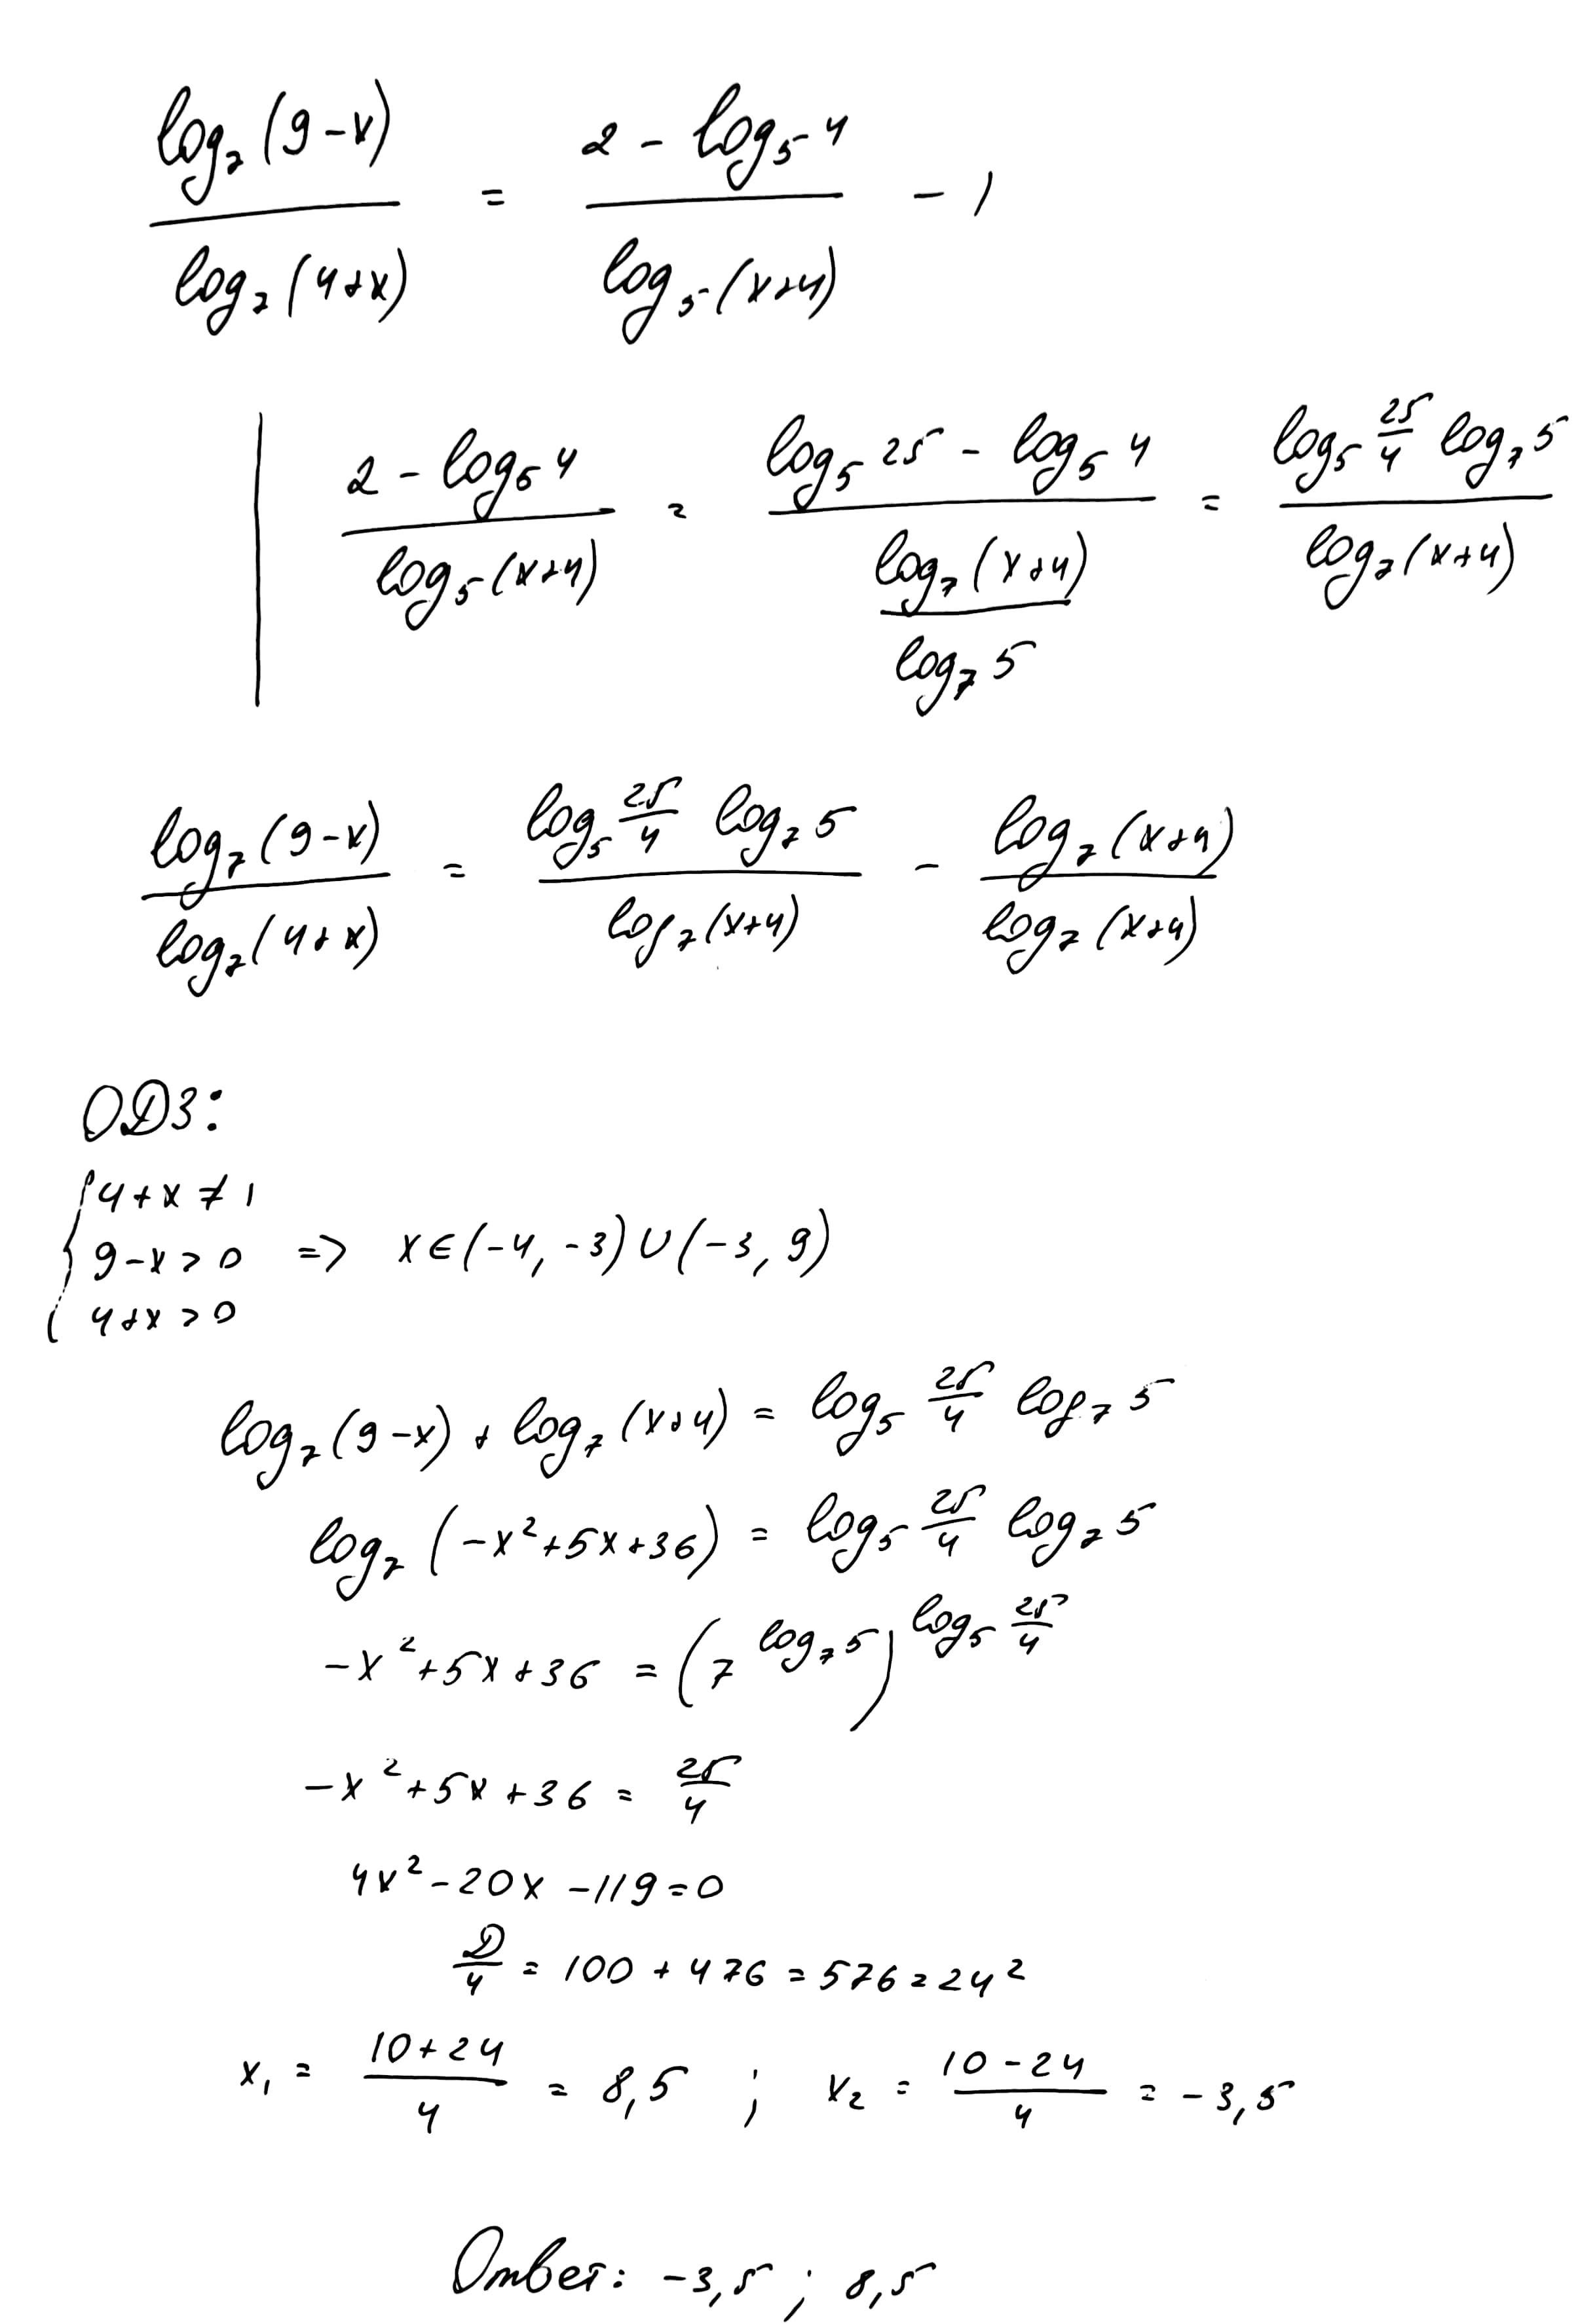 log₇(9-x)/log₇(4+x) = (2 - log₅4)/log₅(x+4) - 1
(2 - log₅4)/log₅(x+4) = (log₅25 - log₅4)/(log₇(x+4)/log₇5) = (log₅(25/4) log₇5)/log₇(x+4)
log₇(9-x)/log₇(4+x) = (log₅(25/4) log₇5)/log₇(x+4) - log₇(x+4)/log₇(x+4)
ОДЗ:
{4+x ≠ 1
9-x > 0 => x∈(-4, -3)∪(-3, 9)
4+x > 0
log₇(9-x) + log₇(x+4) = log₅(25/4) log₇5
log₇(-x²+5x+36) = log₅(25/4) log₇5
-x²+5x+36 = (7^(log₇5))^(log₅(25/4))
-x²+5x+36 = 25/4
4x²-20x-119=0
D/4 = 100+476=576=24²
x₁ = (10+24)/4 = 8,5 ; x₂ = (10-24)/4 = -3,5
Ответ: -3,5 ; 8,5